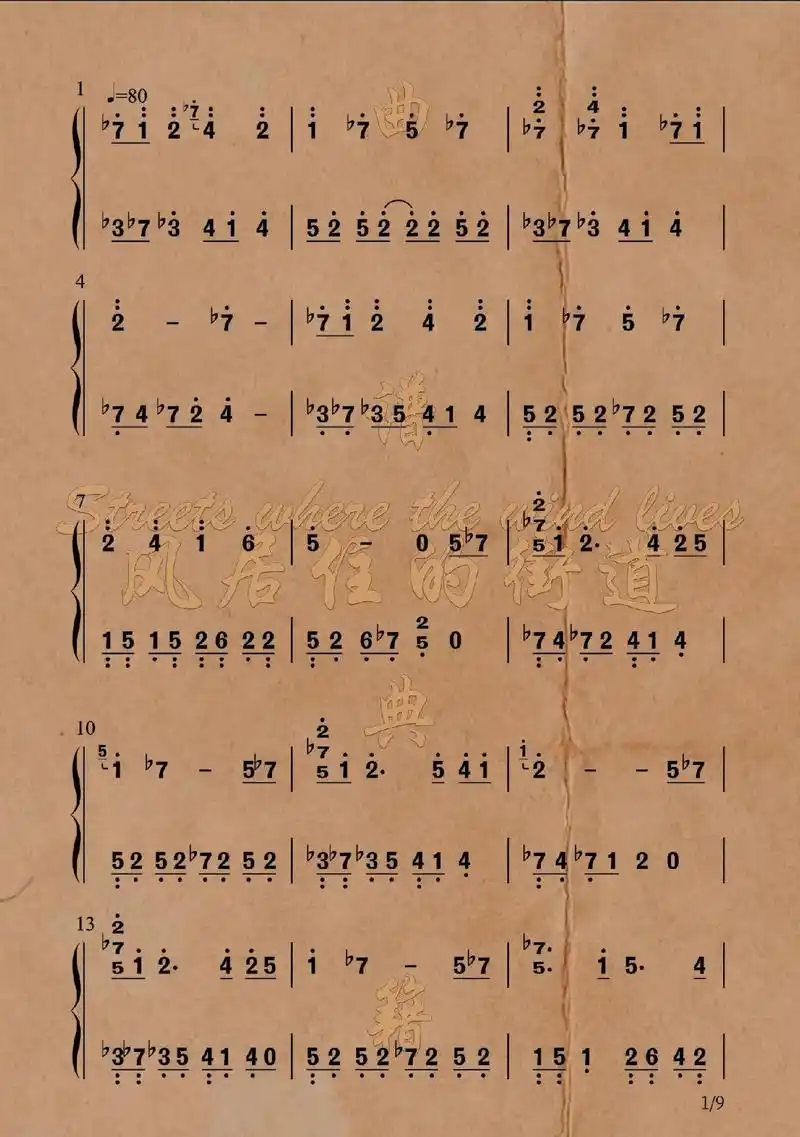 1 ♩=80
♭7 1 2 ♭7 4 2 | 1 ♭7 5 ♭7 | 2 ♭7 4 ♭7 1 ♭7 1 |
曲
♭3 ♭7 ♭3 4 1 4 | 5 2 5 2 2 2 5 2 | ♭3 ♭7 ♭3 4 1 4 |
4
2 – ♭7 – | ♭7 1 2 4 2 | 1 ♭7 5 ♭7 |
谱
♭7 4 ♭7 2 4 – | ♭3 ♭7 ♭3 5 4 1 4 | 5 2 5 2 ♭7 2 5 2 |
Streets where the wind lives
7
2 4 1 6 | 5 – 0 5 ♭7 | 2 ♭7 5 1 2· 4 2 5 |
风居住的街道
1 5 1 5 2 6 2 2 | 5 2 6 ♭7 2 5 0 | ♭7 4 ♭7 2 4 1 4 |
典
10
5 1 ♭7 – 5 ♭7 | 2 ♭7 5 1 2· 5 4 1 | 1 2 – – 5 ♭7 |
5 2 5 2 ♭7 2 5 2 | ♭3 ♭7 ♭3 5 4 1 4 | ♭7 4 ♭7 1 2 0 |
13
2 ♭7 5 1 2· 4 2 5 | 1 ♭7 – 5 ♭7 | ♭7· 5· 1 5· 4 |
籍
♭3 ♭7 ♭3 5 4 1 4 0 | 5 2 5 2 ♭7 2 5 2 | 1 5 1 2 6 4 2 |
1/9